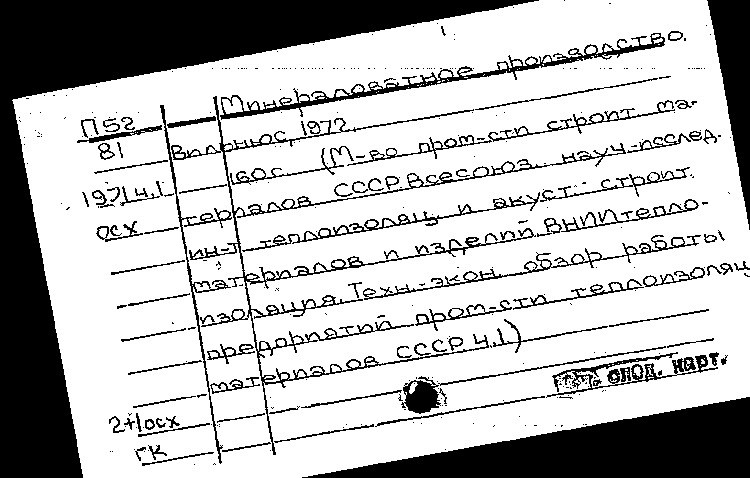 Минераловатное производство.
П52
81
Вильнюс, 1972.
1971 ч.1
160 с. (М-во пром-сти строит. ма-
осх
териалов СССР. Всесоюз. науч.-исслед.
ин-т теплоизоляц. и акуст. строит.
материалов и изделий. ВНИИтепло-
изоляция. Техн.-экон. обзор работы
предприятий пром-сти теплоизоляц
материалов СССР ч.1)
снол. карт.
2+1осх
гк